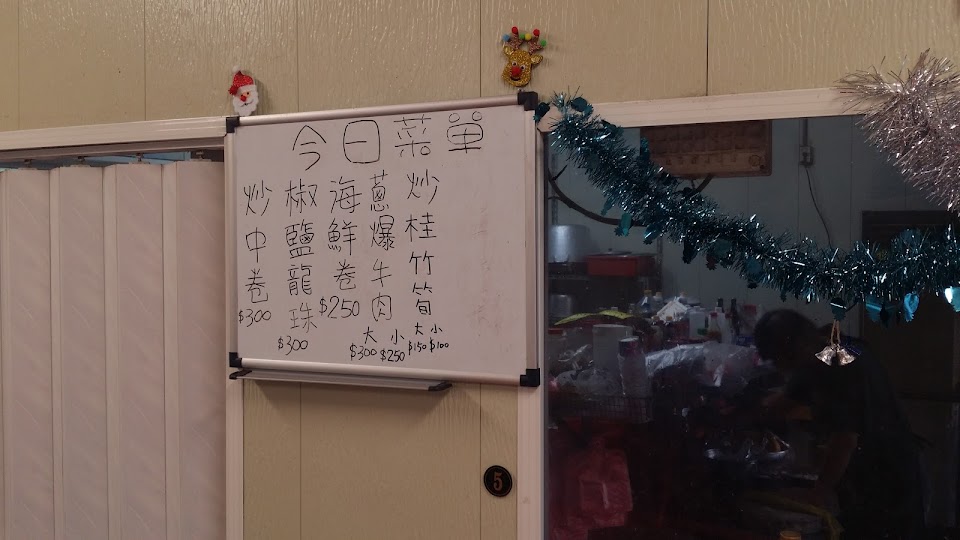 今日菜單
炒桂竹筍
大 小
$150 $100
蔥爆牛肉
大 小
$300 $250
海鮮卷
$250
椒鹽龍珠
$300
炒中卷
$300
5